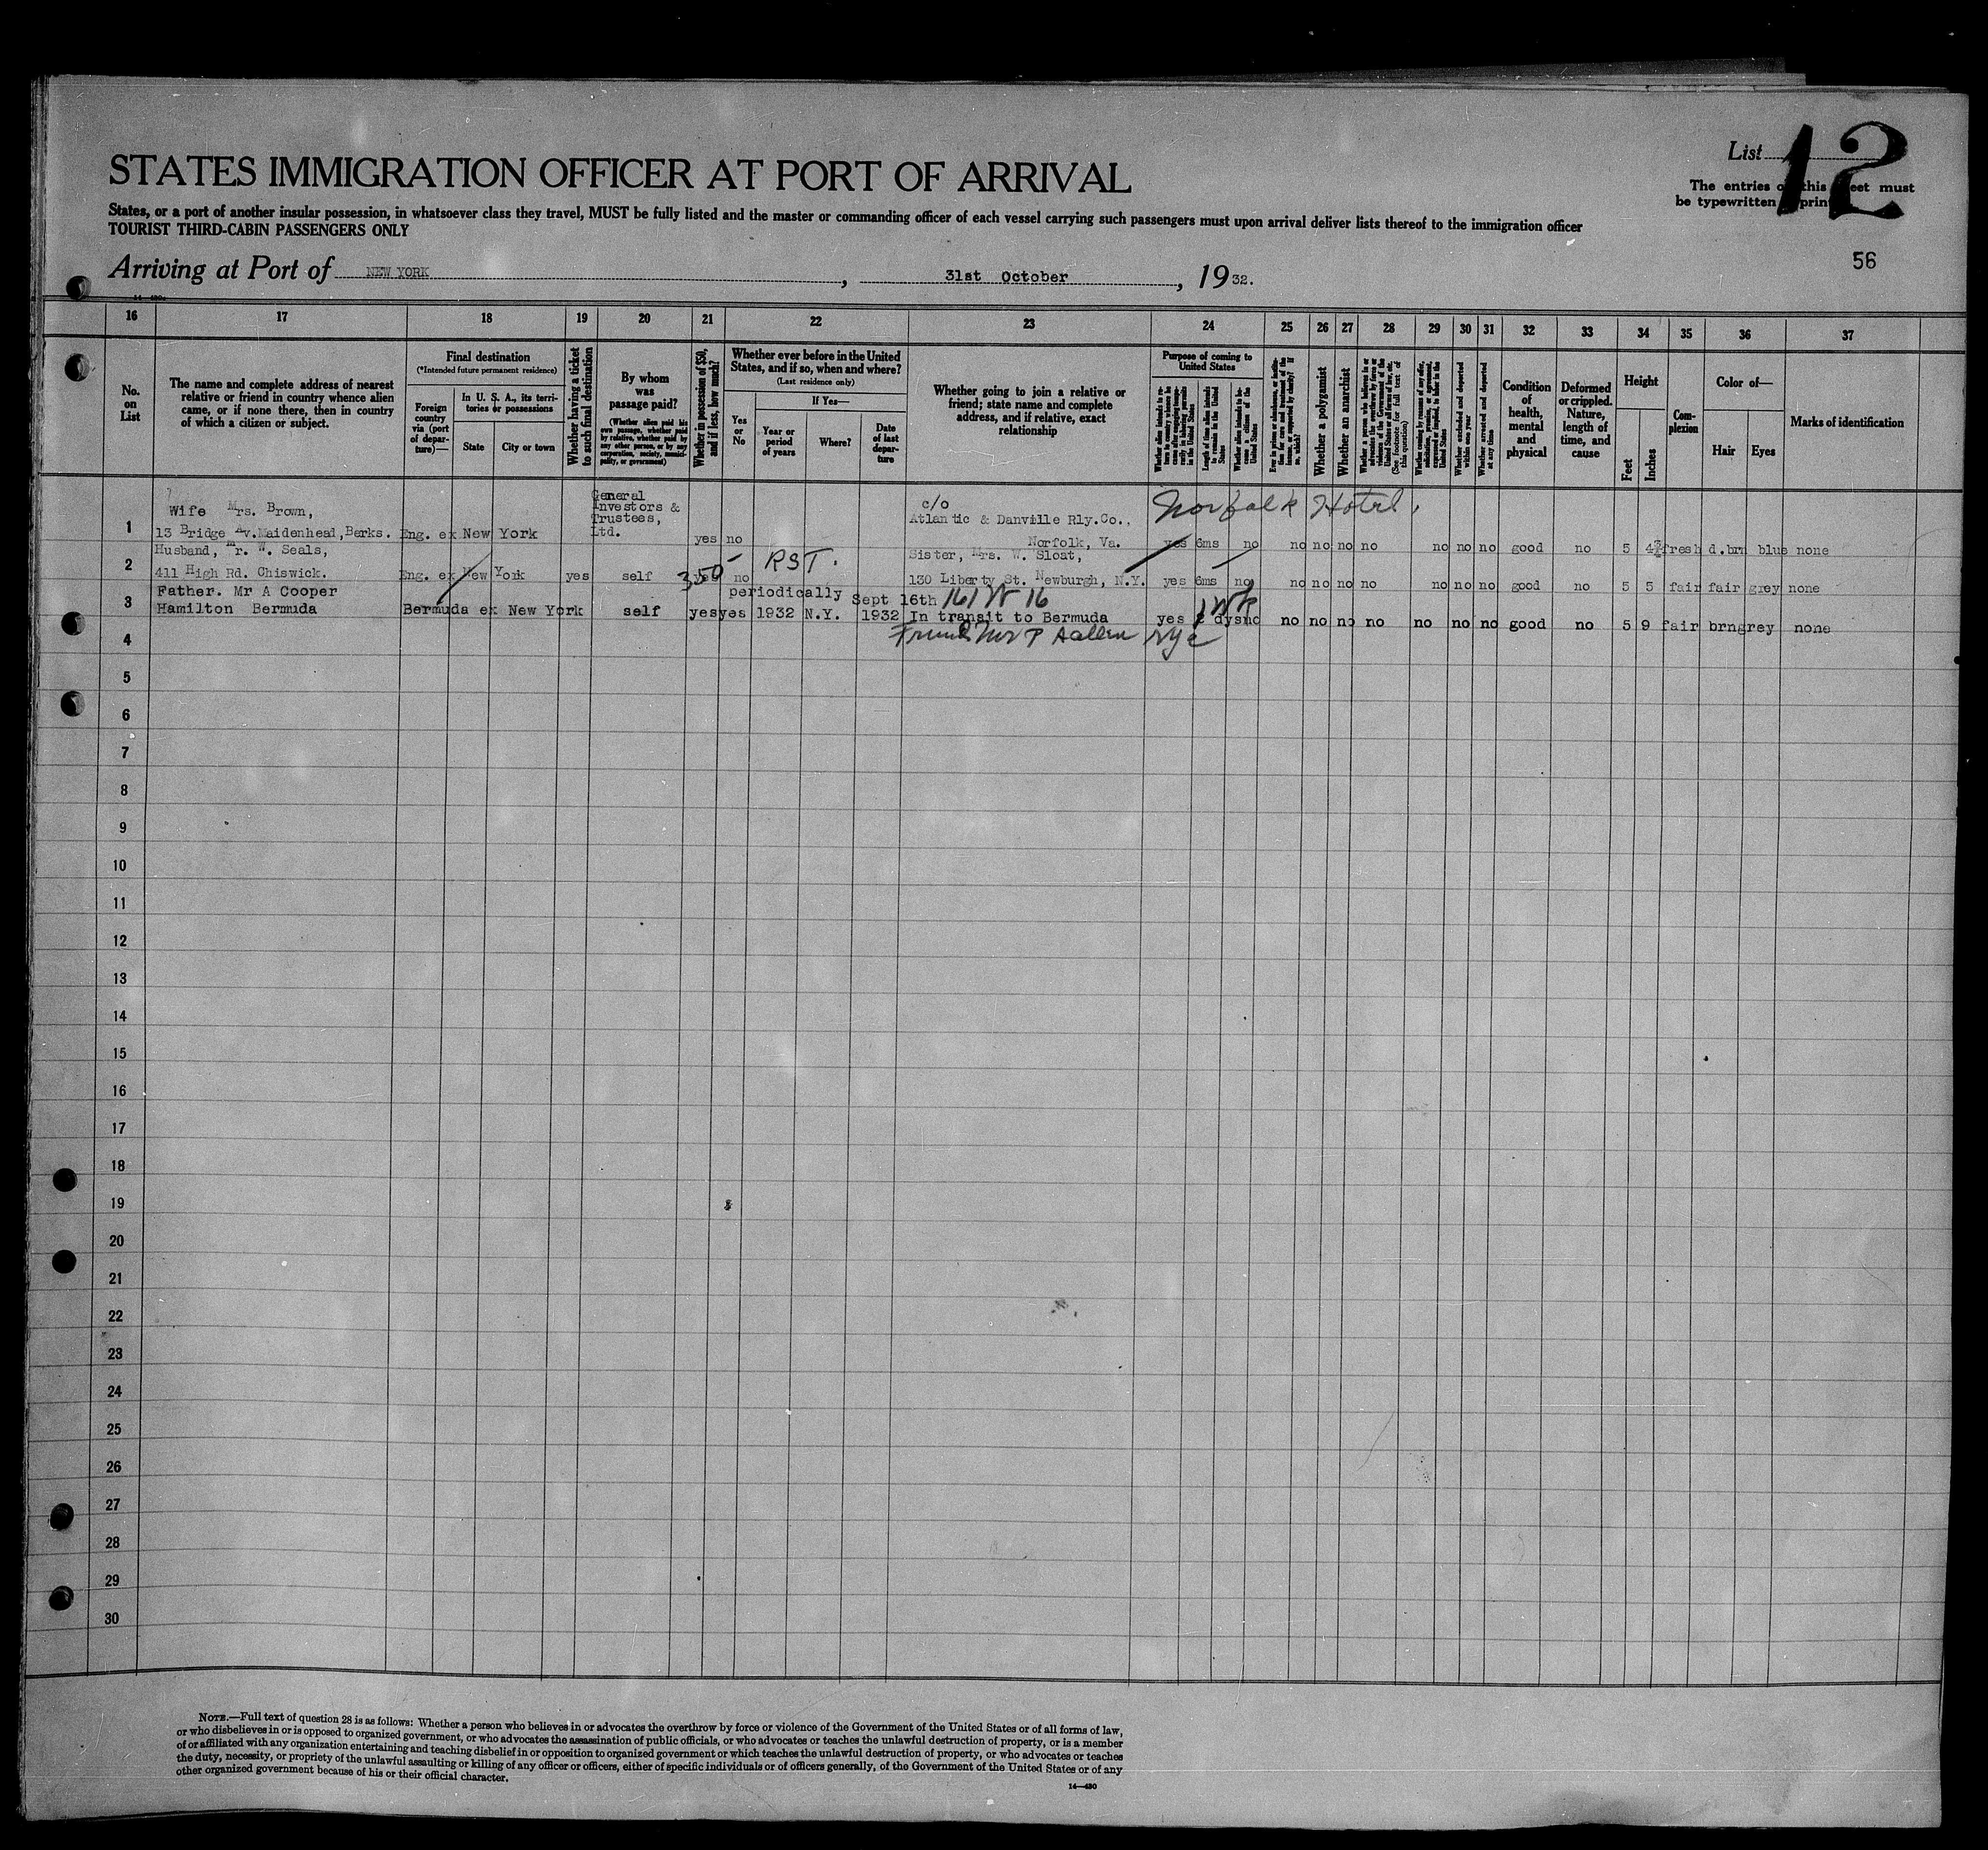 List 12
STATES IMMIGRATION OFFICER AT PORT OF ARRIVAL
The entries on this sheet must
be typewritten or printed
States, or a port of another insular possession, in whatsoever class they travel, MUST be fully listed and the master or commanding officer of each vessel carrying such passengers must upon arrival deliver lists thereof to the immigration officer
TOURIST THIRD-CABIN PASSENGERS ONLY
56
Arriving at Port of NEW YORK, 31st October, 1932.
16 17 18 19 20 21 22 23 24 25 26 27 28 29 30 31 32 33 34 35 36 37
No. on List
The name and complete address of nearest
relative or friend in country whence alien
came, or if none there, then in country
of which a citizen or subject.
Final destination
(*Intended future permanent residence)
Foreign country via (port of departure)—
In U. S. A., its territories or possessions
State
City or town
Whether having a ticket to such final destination
By whom was passage paid?
(Whether alien paid his own passage, whether paid by relative, whether paid by any other person, or by any corporation, society, municipality, or government)
Whether in possession of $50, and if less, how much?
Whether ever before in the United
States, and if so, when and where?
(Last residence only)
Yes or No
If Yes—
Year or period of years
Where?
Date of last departure
Whether going to join a relative or
friend; state name and complete
address, and if relative, exact
relationship
Purpose of coming to United States
Length of time alien intends to remain in the United States
Whether alien intends to become a citizen of the United States
Whether a polygamist
Whether an anarchist
(See footnote for full text of this question)
Whether excluded and deported within one year
Whether arrested and deported at any time
Condition of health, mental and physical
Deformed or crippled. Nature, length of time, and cause
Height
Feet
Inches
Complexion
Color of—
Hair
Eyes
Marks of identification
1 Wife Mrs. Brown,
13 Bridge Av. Maidenhead, Berks. Eng. ex New York General Investors & Trustees, Ltd. yes no c/o Atlantic & Danville Rly.Co., Norfolk, Va. Norfolk Hotel, yes 6ms no no no no no no no no good no 5 4½ fresh d.brn blue none
2 Husband, Mr. W. Seals,
411 High Rd. Chiswick. Eng. ex New York yes self 350 yes no RST. Sister, Mrs. W. Sloat, 130 Liberty St. Newburgh, N.Y. yes 6ms no no no no no no no no good no 5 5 fair fair grey none
3 Father. Mr A Cooper
Hamilton Bermuda Bermuda ex New York self yes yes periodically 1932 N.Y. Sept 16th 1932 161 W 16 In transit to Bermuda yes 2 dys 1 wk no no no no no no no no good no 5 9 fair brn grey none
Friend Mr P Aallen NYC
4
5
6
7
8
9
10
11
12
13
14
15
16
17
18
19
20
21
22
23
24
25
26
27
28
29
30
NOTE.—Full text of question 28 is as follows: Whether a person who believes in or advocates the overthrow by force or violence of the Government of the United States or of all forms of law,
or who disbelieves in or is opposed to organized government, or who advocates the assassination of public officials, or who advocates or teaches the unlawful destruction of property, or is a member
of or affiliated with any organization entertaining and teaching disbelief in or opposition to organized government or which teaches the unlawful destruction of property, or who advocates or teaches
the duty, necessity, or propriety of the unlawful assaulting or killing of any officer or officers, either of specific individuals or of officers generally, of the Government of the United States or of any
other organized government because of his or their official character.
14—480